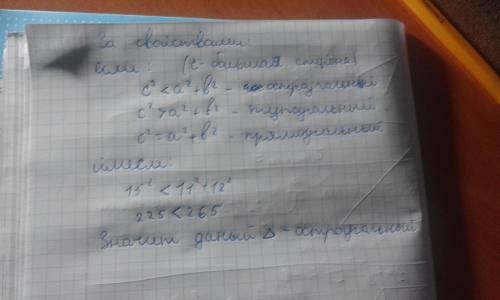 За свойствами:
если: (с-большая сторона)
c² < a²+b² - остроугольный
c² > a²+b² - тупоугольный
c² = a²+b² - прямоугольный
имеем:
15² < 11²+12²
225 < 265
Значит даный Δ-остроугольный